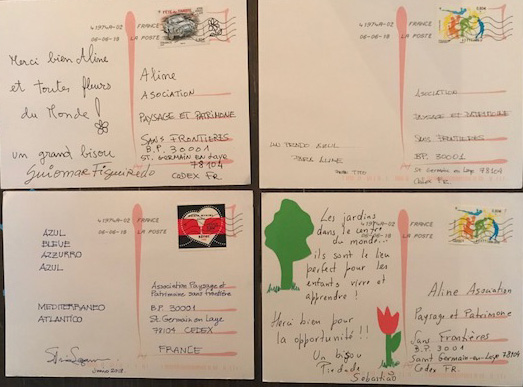 41974A-02 FRANCE
06-06-18 LA POSTE
Merci bien Aline
et toutes fleurs
du Monde!
un grand bisou
Guiomar Figueiredo
Aline
ASOCIATION
PAYSAGE ET PATRIMONE
SANS FRONTIERES
B.P. 30001
ST. GERMAIN EN Laye
78104
CEDEX FR
41974A-02 FRANCE
06-06-18 LA POSTE
ASOCIATION
PAYSAGE ET PATRIMOINE
SANS FRONTIERES
BP. 30001
St Germain en Laye 78104
FR
AZUL
BLEUE
AZZURRO
AZUL
MEDITERRANEO
ATLANTICO
Junio 2018
41974A-02 FRANCE
06-06-18 LA POSTE
Association Paysage et
Patrimoine sans frontière
B.P 30001
St. Germain en Laye
78104 CEDEX
FRANCE
Les jardins
dans le centre
du monde...
ils sont le lieu
perfect pour les
enfants vivre et
apprendre!
Merci bien pour
la opportunité!!
Un bisou
Piedade
Sebastião
41974A-02 FRANCE
06-06-18 LA POSTE
Aline Assocation
Paysage et Patrimoine
Sans Frontières
B.P. 30001
Saint Germain-en-Laye 78104
Cedex FR.